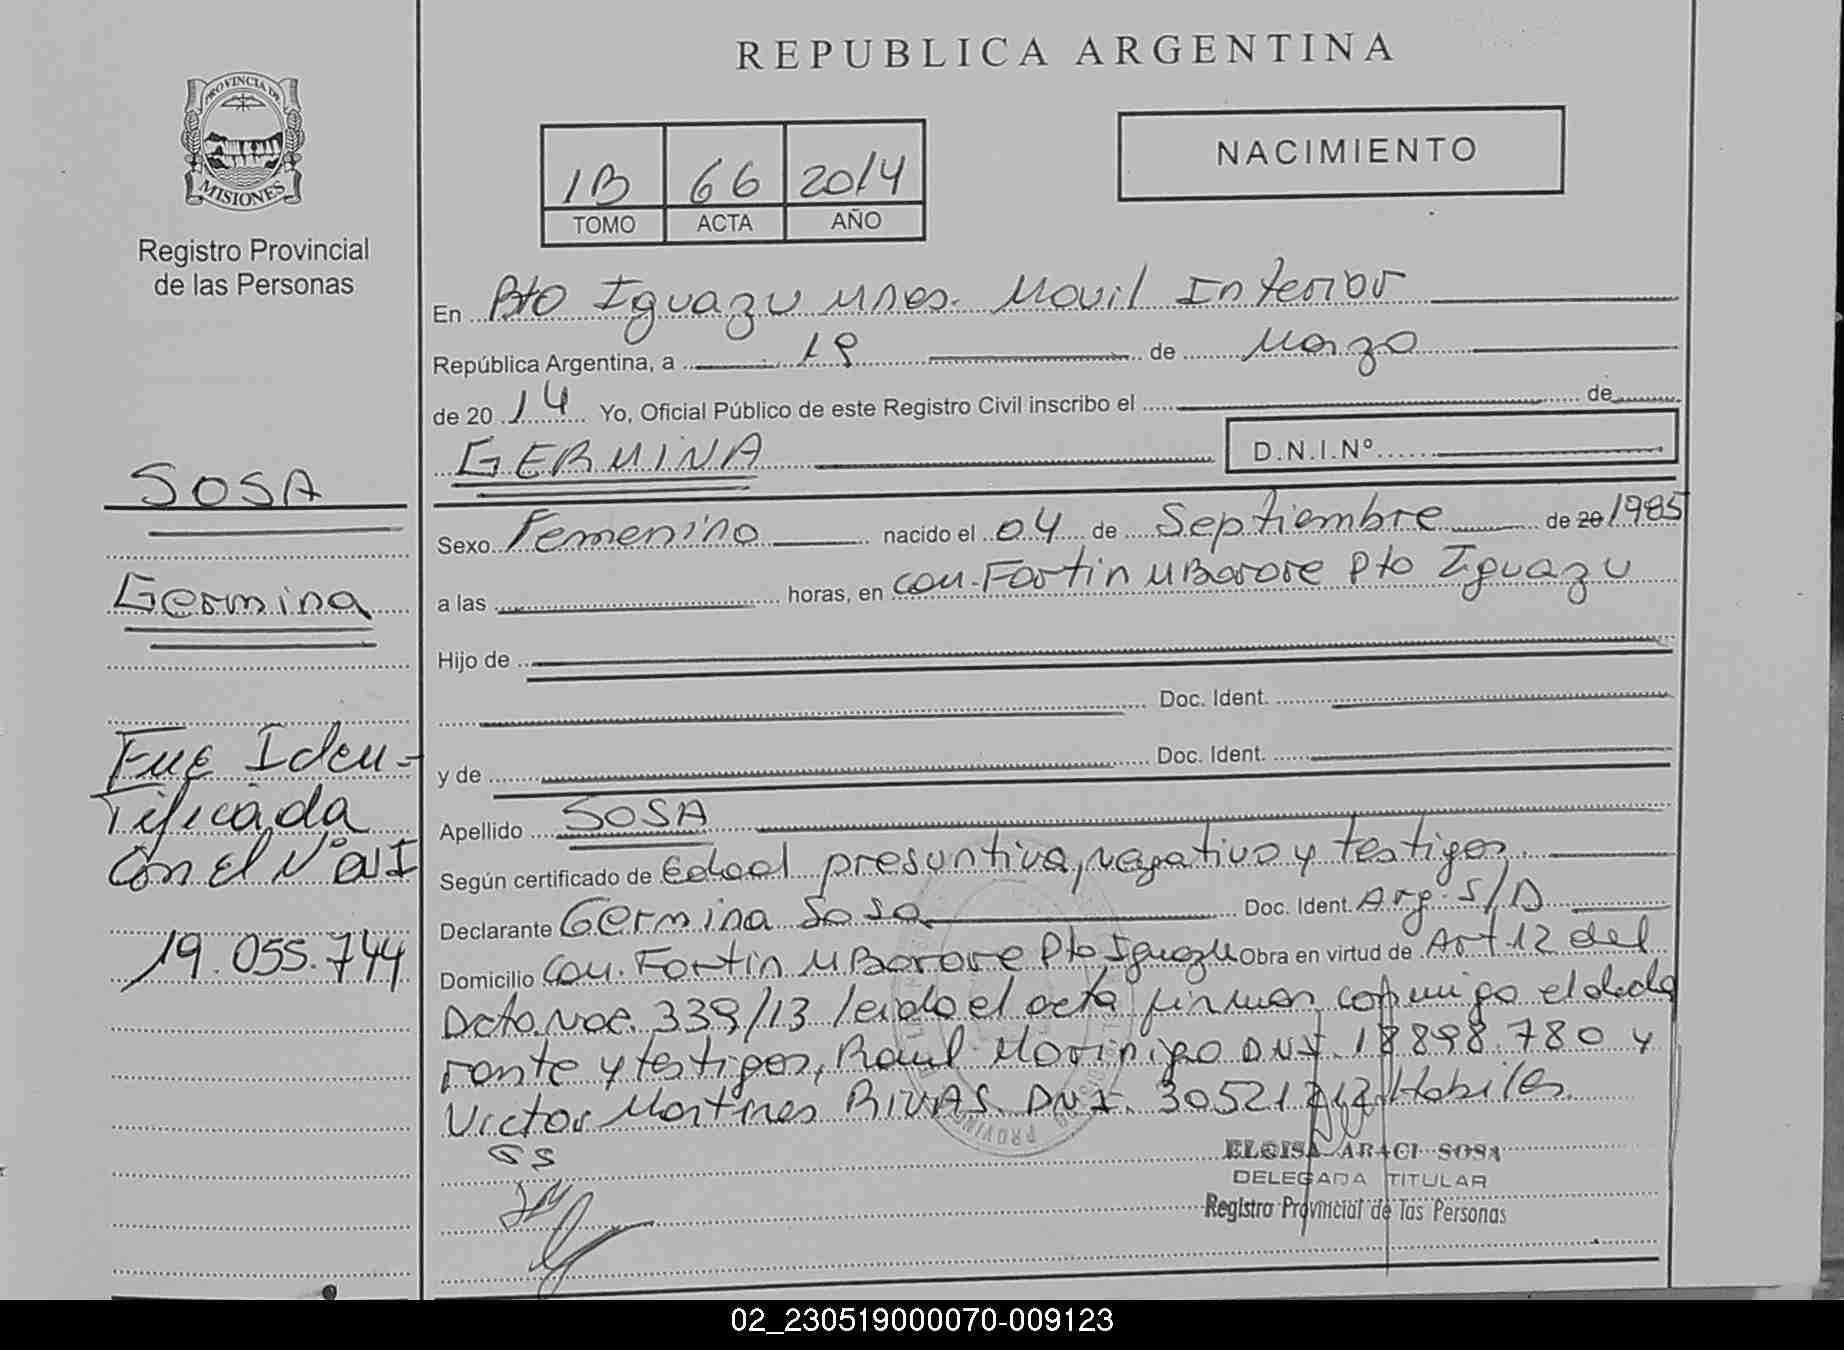 REPUBLICA ARGENTINA
PROVINCIA DE
MISIONES
Registro Provincial
de las Personas
NACIMIENTO
1B 66 2014
TOMO ACTA AÑO
En Pto Iguazu Mnes. Movil Interior
República Argentina, a 19 de Marzo
de 2014 Yo, Oficial Público de este Registro Civil inscribo el de
GERMINA D.N.I.Nº
SOSA
Germina
Sexo Femenino nacido el 04 de Septiembre de 20 1985
a las horas, en Com. Fortin MBorore Pto Iguazu
Hijo de
Doc. Ident.
y de Doc. Ident.
Fue Iden-
tificada
Con El Nº DNI
19.055.744
Apellido SOSA
Según certificado de Edad presuntiva, negativo y testigos.
Declarante Germina Sosa Doc. Ident. Arg. S/D
Domicilio Com. Fortin MBorore Pto Iguazu Obra en virtud de Art 12 del
Dcto. Nac. 339/13 leida el acta firman conmigo el decla
rante y testigos, Raul Morinigo DNI. 18898.780 y
Victor Martines RIVAS. DNI. 30521 Habiles.
SS
ELOISA ARACI SOSA
DELEGADA TITULAR
Registro Provincial de las Personas
02_230519000070-009123